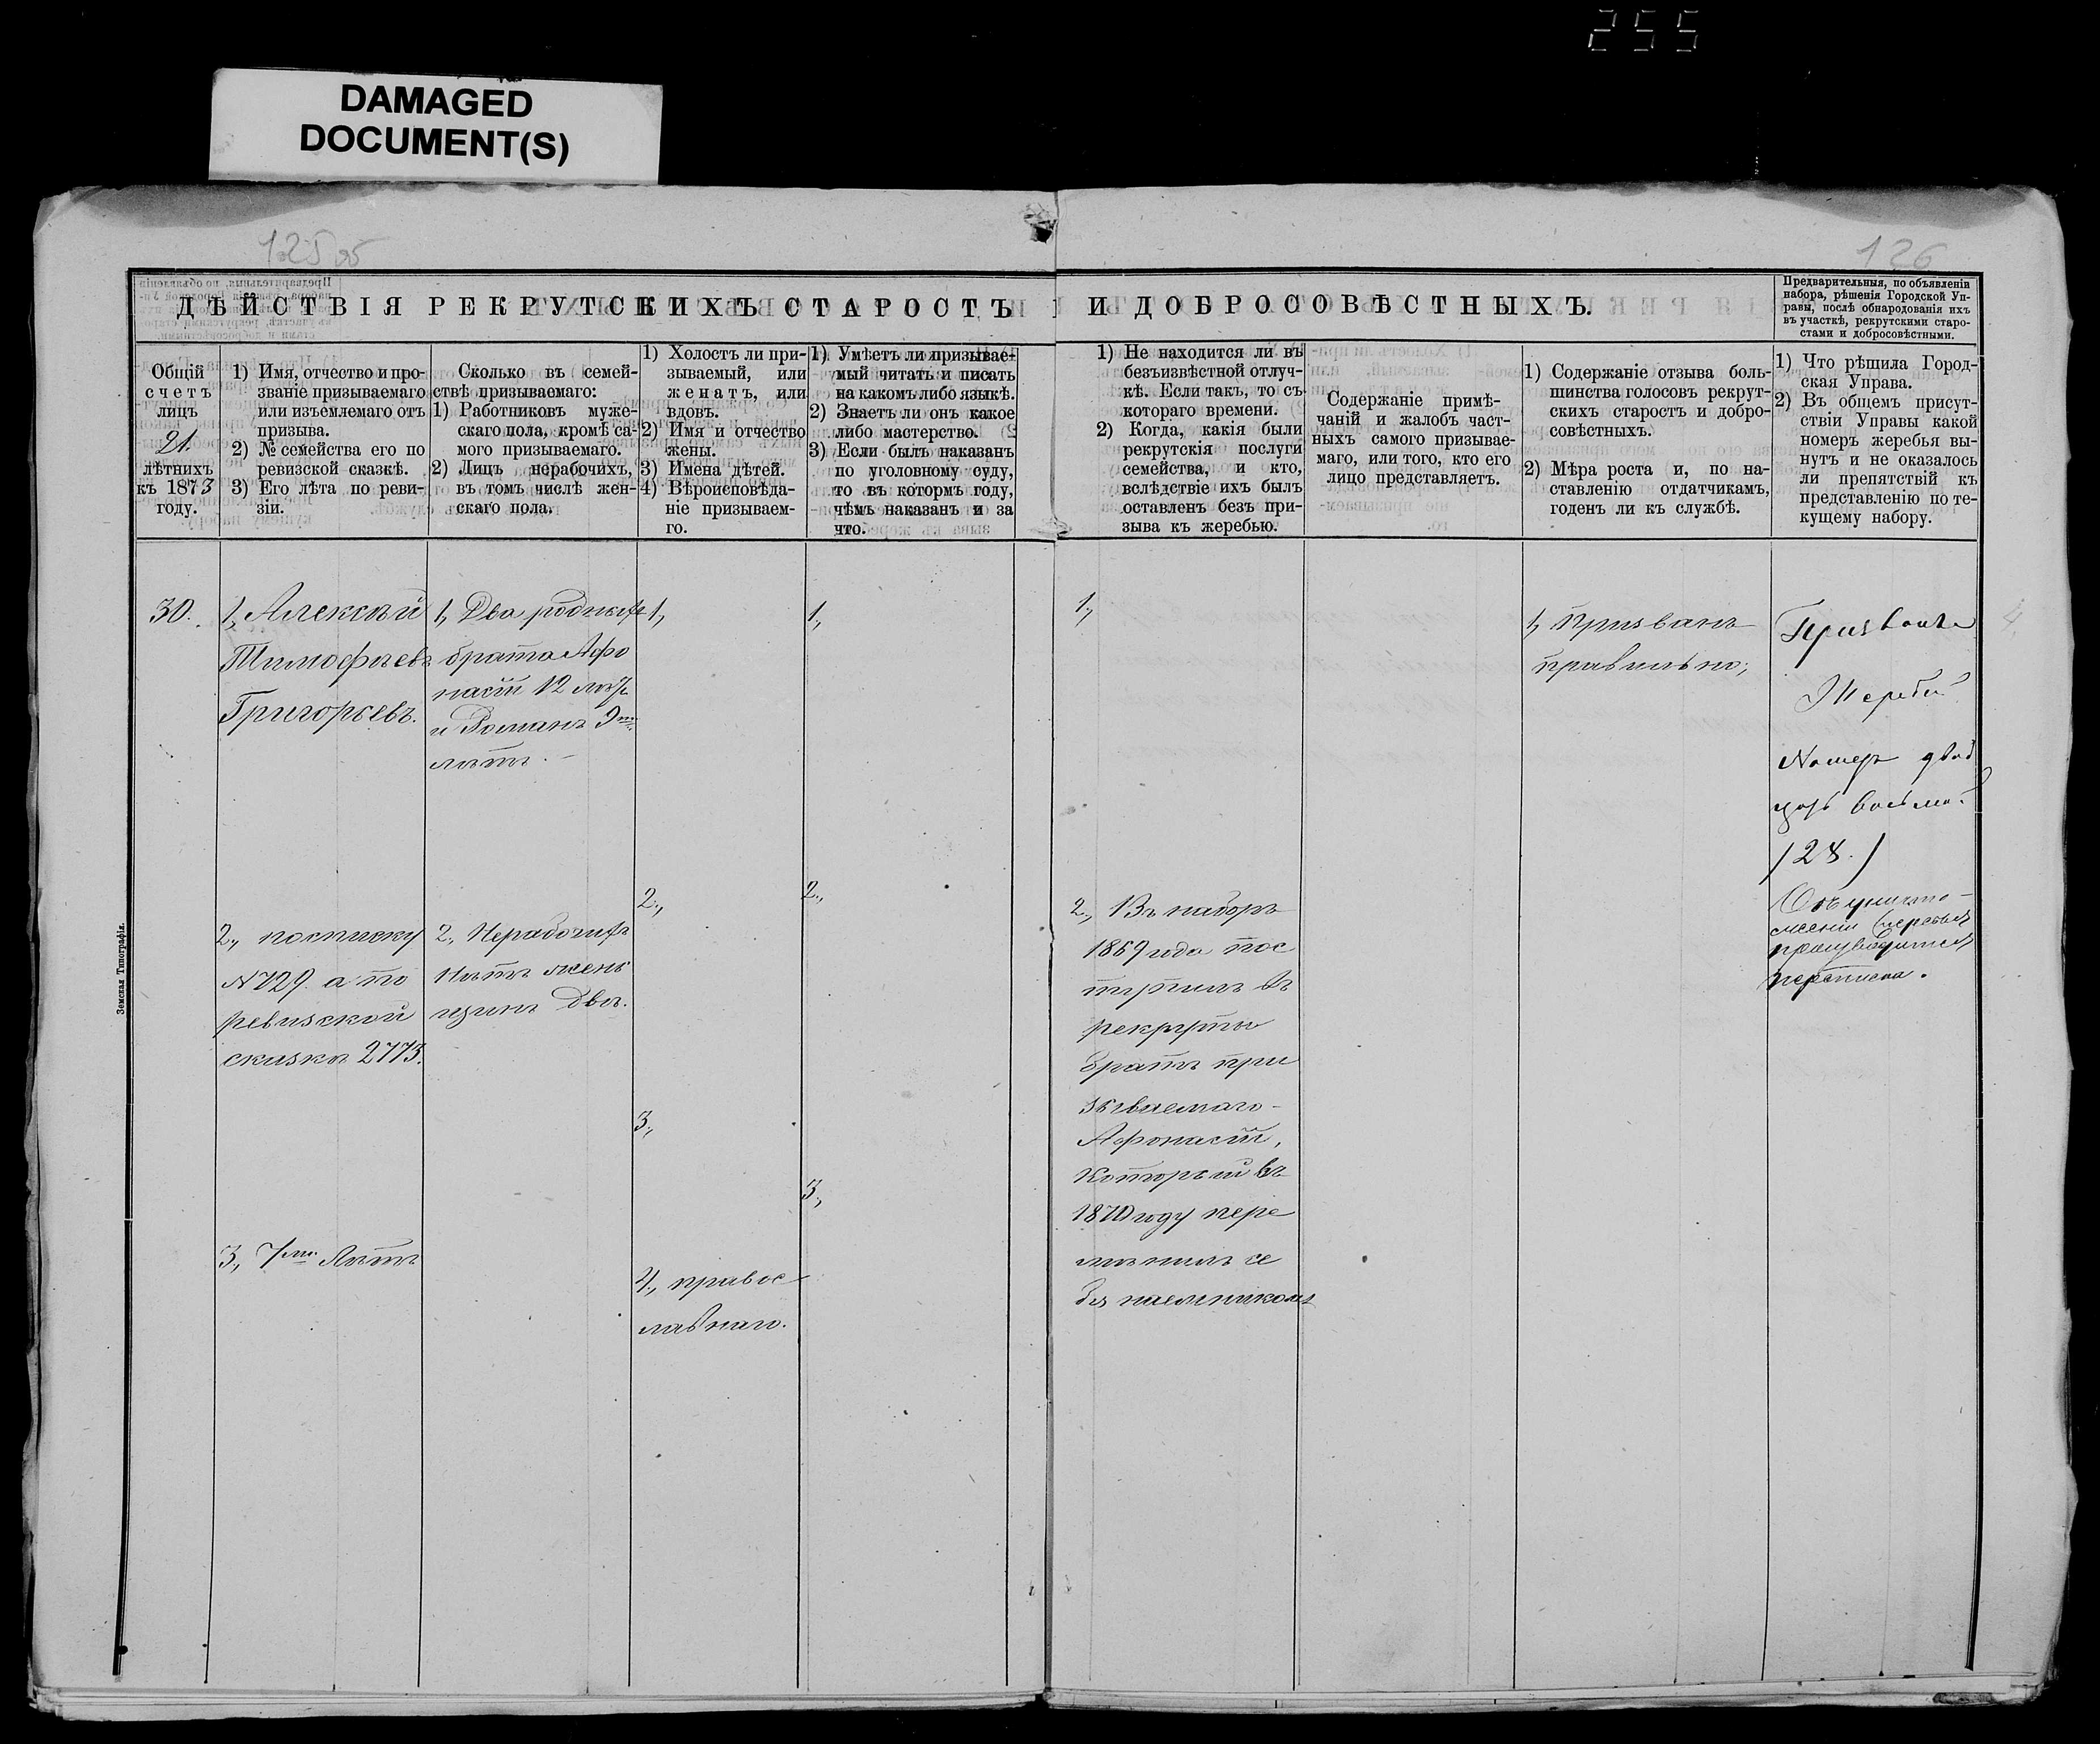 255
DAMAGED
DOCUMENT(S)
125 об
126
ДѢЙСТВІЯ РЕКРУТСКИХЪ СТАРОСТЪ
И ДОБРОСОВѢСТНЫХЪ.
Предварительныя, по объявленіи
набора, рѣшенія Городской Уп-
равы, послѣ обнародованія ихъ
въ участкѣ, рекрутскими старо-
стами и добросовѣстными.
Общій
счетъ
лицъ
21
лѣтнихъ
къ 1873
году.
1) Имя, отчество и про-
званіе призываемаго
или изъемлемаго отъ
призыва.
2) № семейства его по
ревизской сказкѣ.
3) Его лѣта по реви-
зіи.
Сколько въ семей-
ствѣ призываемаго:
1) Работниковъ муже-
скаго пола, кромѣ са-
мого призываемаго.
2) Лицъ нерабочихъ,
въ томъ числѣ жен-
скаго пола.
1) Холостъ ли при-
зываемый, или
женатъ, или
вдовъ.
2) Имя и отчество
жены.
3) Имена дѣтей.
4) Вѣроисповѣда-
ніе призываем-
го.
1) Умѣетъ ли призывае-
мый читать и писать
на какомъ либо языкѣ.
2) Знаетъ ли онъ какое
либо мастерство.
3) Если былъ наказанъ
по уголовному суду,
то въ котормъ году,
чѣмъ наказанъ и за
что.
1) Не находится ли въ
безъизвѣстной отлуч-
кѣ. Если такъ, то съ
котораго времени.
2) Когда, какія были
рекрутскія послуги
семейства, и кто,
вслѣдствіе ихъ былъ
оставленъ безъ при-
зыва къ жеребью.
Содержаніе примѣ-
чаній и жалобъ част-
ныхъ самого призывае-
маго, или того, кто его
лицо представляетъ.
1) Содержаніе отзыва боль-
шинства голосовъ рекрут-
скихъ старостъ и добро-
совѣстныхъ.
2) Мѣра роста и, по на-
ставленію отдатчикамъ,
годенъ ли къ службѣ.
1) Что рѣшила Город-
ская Управа.
2) Въ общемъ присут-
ствіи Управы какой
номеръ жеребья вы-
нутъ и не оказалось
ли препятствій къ
представленію по те-
кущему набору.
30.
1, Алексѣй
Тимофѣевъ
Григорьевъ.
2, посписку
№729 а по
ревизской
сказкѣ 2773.
3, 7ми Лѣтъ
1, Два родныхъ
брата Афо
насій 12 лѣтъ
и Романъ 9ти
лѣтъ.
2, Нерабочихъ
нѣтъ жен
щинъ двѣ.
1,
2,
3,
4, правос
лавнаго.
1,
2,
3,
1,
2, Въ наборъ
1869 года пос
тупилъ въ
рекруты
братъ при
зываемаго
Афонасій,
который въ
1870 году пере
мѣнилъ се
бя наемникомъ
1, Призванъ
правильно;
Призванъ
Жеребій
Номеръ двад
цать восьмой
/28./
Объ уничто-
женіи жеребья
производится
переписка.
Земская Типографія.